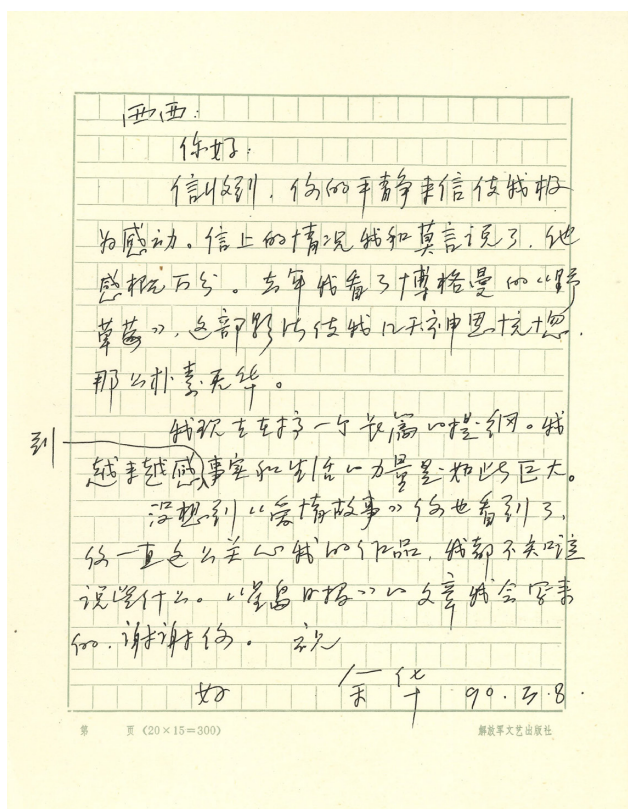 西西：
你好：
信收到，你的平静来信使我极
为感动。信上的情况我和莫言说了，他
感慨万分。去年我看了博格曼的《野
草莓》，这部影片使我几天神思恍惚，
那么朴素无华。
我现在在搞一个长篇的提纲。我
越来越感到事实和生活的力量是如此巨大。
没想到《爱情故事》你也看到了，
你一直这么关心我的作品，我都不知该
说些什么。《星岛日报》的文章我会写来
的，谢谢你。 祝
好 余华 90.3.8.
第 页（20×15=300） 解放军文艺出版社